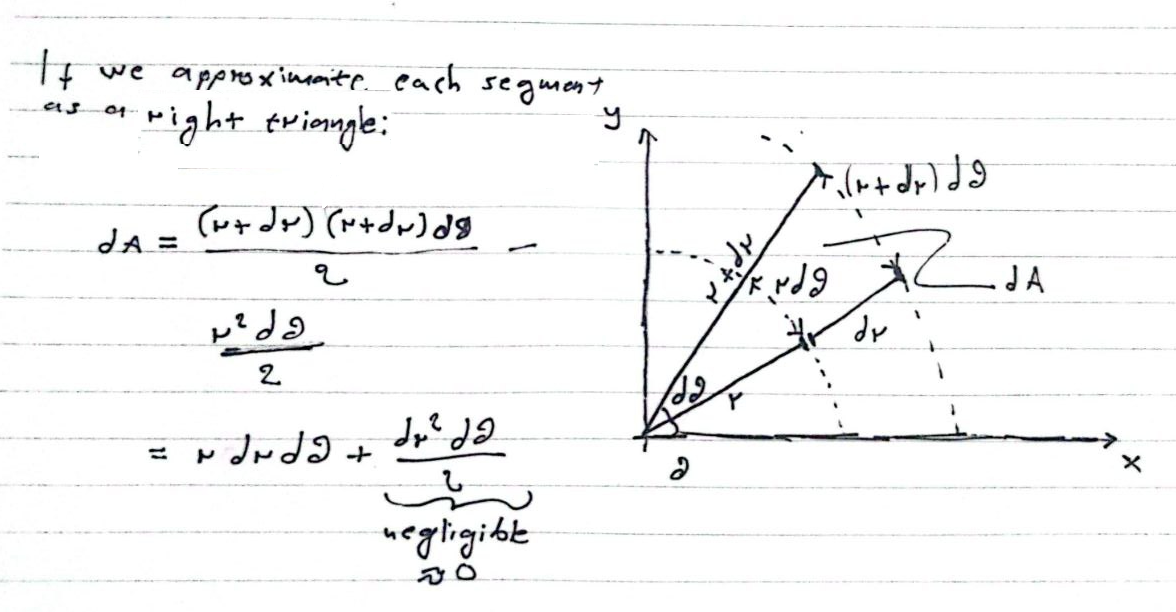 If we approximate each segment
as a right triangle:
dA = (r+dr) (r+dr) dθ / 2 −
r² dθ / 2
= r dr dθ + dr² dθ / 2
negligible
≈ 0
y
(r+dr) dθ
dr
r
r dθ
dA
dr
dθ
r
θ
x